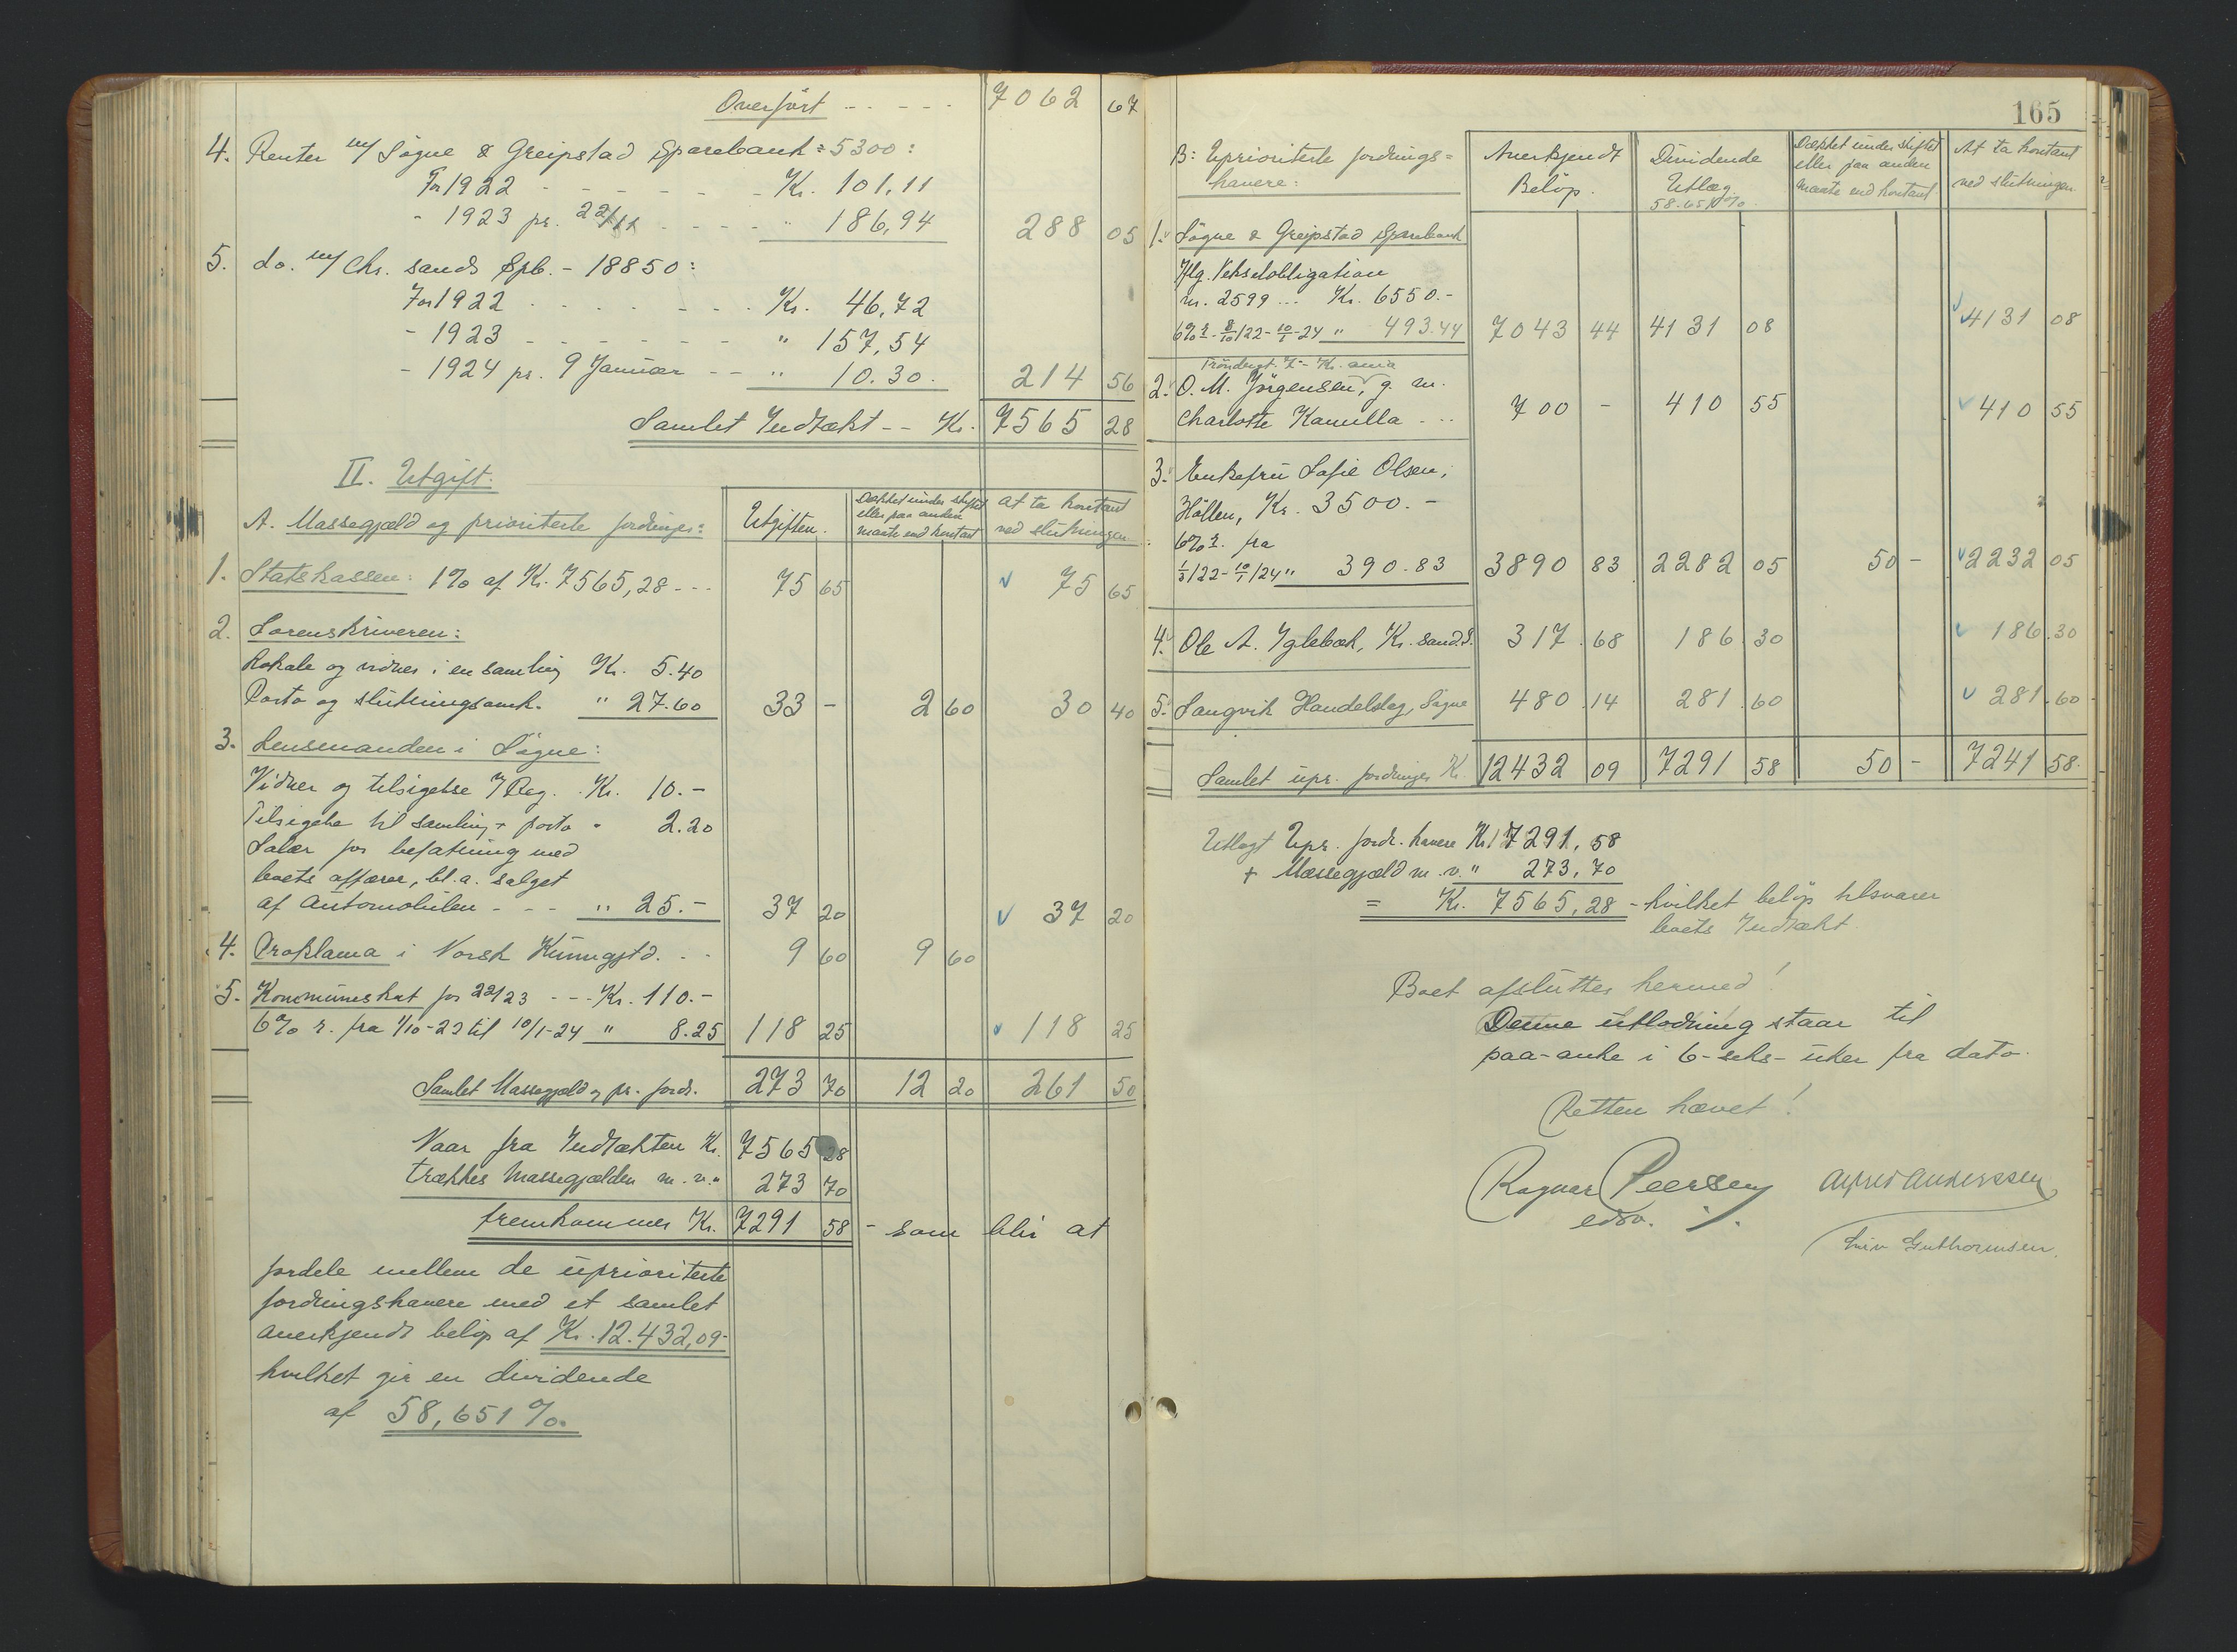 Overført - - - - - 7062 67
4. Renter m/ Søgne & Greipstad Sparebank = 5300:
For 1922 - - - - - - Kr. 101,11
- 1923 pr. 22/11 - - - - " 186,94 288 05
5. do. m/ Chr. sands Spb. - 18850:
For 1922 - - - - - Kr. 46,72
- 1923 - - - - - - " 157,54
- 1924 pr. 9 Januar - - " 10.30. 214 56
Samlet Indtækt - - Kr. 7565 28
II. Utgift.
A. Massegjæld og prioriterte fordringer:
Utgiften.
Dækket under skiftet
eller paa anden
maate end kontant
At ta kontant
ved slutningen
1. Statskassen: 1% af Kr. 7565,28 - - - 75 65 75 65
2. Sorenskriveren:
Lokale og vidner i en samling Kr. 5.40
Porto og slutningsomk. " 27.60 33 - 2 60 30 40
3. Lensmanden i Søgne:
Vidner og tilsigelse / Reg. Kr. 10.-
Tilsigelse til samling + porto " 2.20
Salær for befatning med
boets affærer, bl.a. salget
af Automobilen - - - " 25.- 37 20 37 20
4. Proklama i Norsk Kunngjtd. - - 9 60 9 60
5. Kommuneskat for 22/23 - - - Kr. 110.-
6% r. fra 1/10-22 til 10/1-24 " 8.25 118 25 118 25
Samlet Massegjæld og pr. fordr. 273 70 12 20 261 50
Naar fra Indtækten Kr. 7565 28
trækkes Massegjælden m.v. " 273 70
fremkommer Kr. 7291 58 - som blir at
fordele mellem de uprioriterte
fordringshavere med et samlet
anerkjendt beløp af Kr. 12.432,09-
hvilket gir en dividende
af 58,651%.
165
B: Uprioriterte fordrings=
havere:
Anerkjendt
Beløp.
Dividende
Utlæg.
58.651%.
Dækket under skiftet
eller paa anden
maate end kontant
At ta kontant
ved slutningen
1. Søgne & Greipstad Sparebank
Iflg. Vekselobligation
nr. 2599 ... Kr. 6550.-
6% r. - 8/10/22 - 10/1-24 " 493.44 7043 44 4131 08 4131 08
2. O. M. Jørgensen, g. m.
Charlotte Kamilla - - - 700 - 410 55 410 55
3. Enkefru Sofie Olsen,
Høllen, Kr. 3500.-
6% r. fra
1/3/22 - 10/1/24 " 390.83 3890 83 2282 05 50 - 2232 05
4. Ole A. Yglebæk, Kr. sand.S. 317.68 186.30 186.30
5. Langvik Handelslag, Søgne 480.14 281.60 281.60
Samlet upr. fordringer Kr. 12432 09 7291 58 50 - 7241 58.
Utlagt Upr. fordr. havere Kr. 7291.58
+ Massegjæld m.v. " 273,70
= Kr. 7565,28 - hvilket beløp tilsvarer
boets Indtækt.
Boet afsluttes hermed!
Denne utlodning staar til
paa-anke i 6-seks-uker fra dato.
Retten hævet!
Ragnar Peersen
edsv.
Alfred Anderssen
Guthormsen.